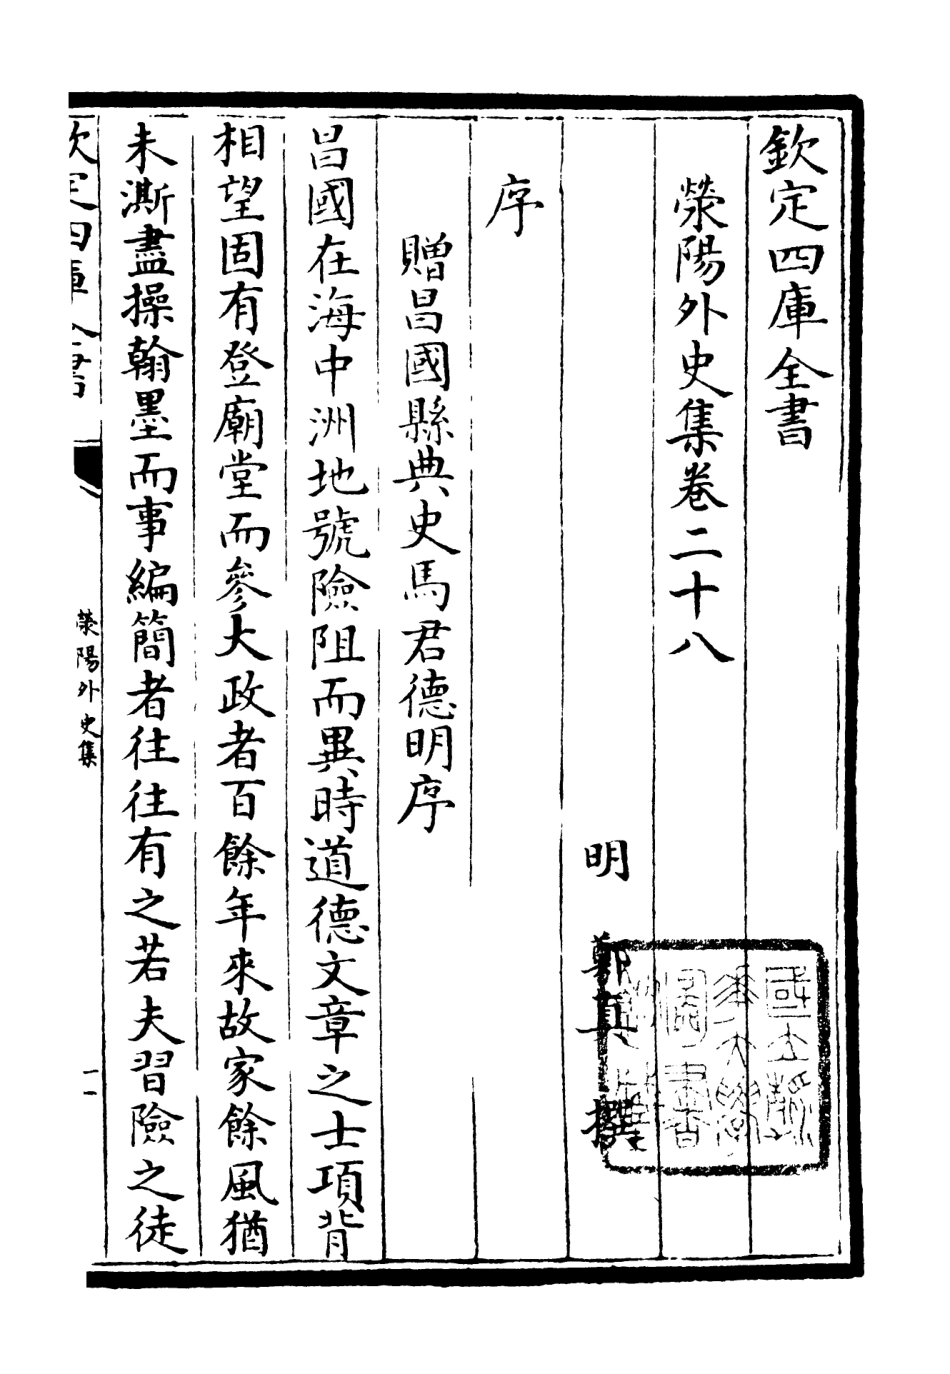 欽定四庫全書
滎陽外史集卷二十八
明 鄭真 撰
序
贈昌國縣典史馬君德明序
昌國在海中洲地號險阻而異時道德文章之士項背
相望固有登廟堂而參大政者百餘年來故家餘風猶
未澌盡操翰墨而事編簡者往往有之若夫習險之徒
欽定四庫全書
滎陽外史集
一